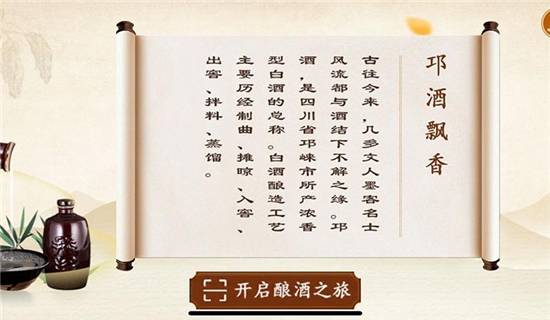 邛酒飘香
古往今来，几多文人墨客名士
风流都与酒结下不解之缘。邛
酒，是四川省邛崃市所产浓香
型白酒的总称。白酒酿造工艺
主要历经制曲、摊晾、入窖、
出窖、拌料、蒸馏。
开启酿酒之旅